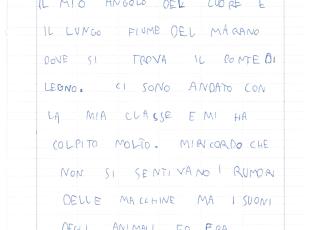 IL MIO ANGOLO DEL CUORE È
IL LUNGO FIUME DEL MARANO
DOVE SI TROVA IL PONTE DI
LEGNO. CI SONO ANDATO CON
LA MIA CLASSE E MI HA
COLPITO MOLTO. MI RICORDO CHE
NON SI SENTIVANO I RUMORI
DELLE MACCHINE MA I SUONI
DEGLI ANIMALI ED ERA